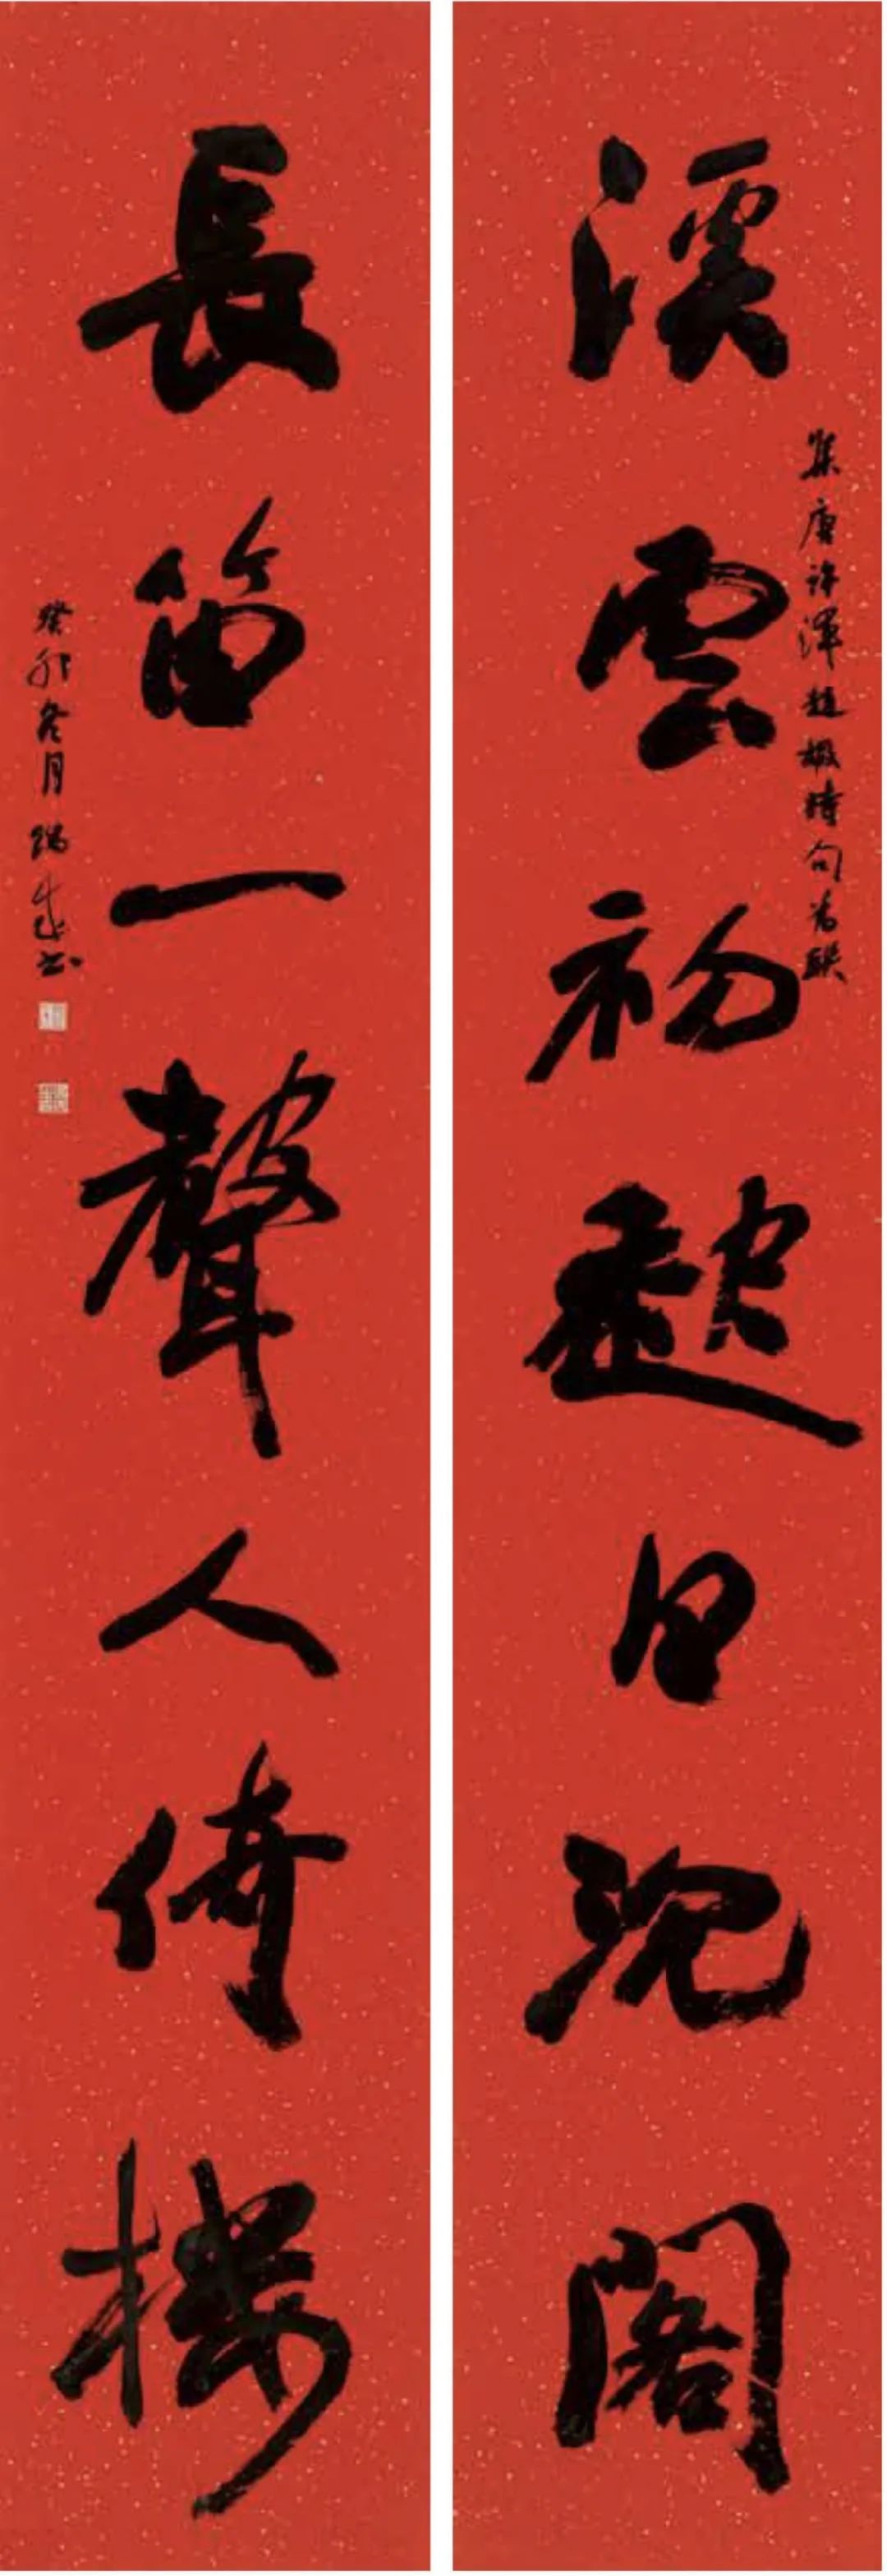 溪雲初起日沈閣
集唐許渾趙嘏詩句為聯
長笛一聲人倚樓
癸卯冬月